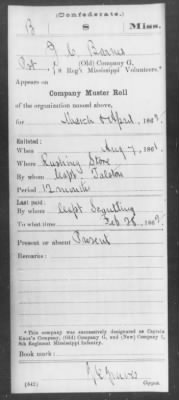 (Confederate.)
B 8 Miss.
J. C. Barnes
Pvt., (Old) Company G,
8 Reg't Mississippi Volunteers.*
Appears on
Company Muster Roll
of the organization named above,
for March & April, 186
Enlisted:
When Aug 7, 1861.
Where Rushing Store
By whom Capt.
Period 12 month
Last paid:
By whom Capt
To what time Feb 28, 186
Present or absent Present
Remarks:
*This company was successively designated as Captain
Company, (Old) Company G, and (New) Company
8th Regiment Mississippi Infantry.
Book mark:
(642) Copyist.